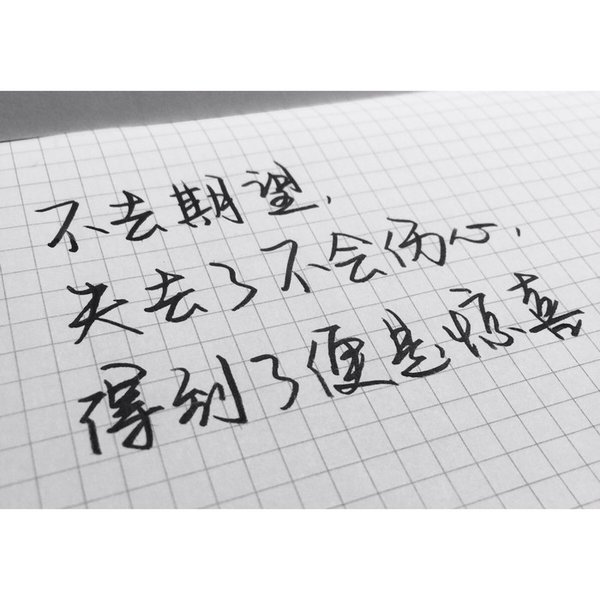 不去期望.
失去了不会伤心.
得到了便是惊喜